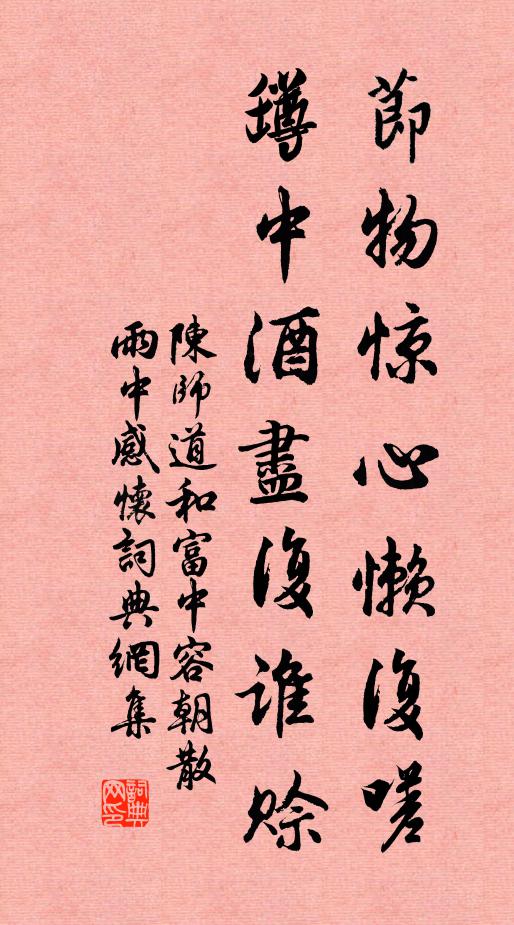 節物惊心懒復嗟
罇中酒盡復谁赊
陳師道和富中容朝散
雨中感懷詞典網集
詞典
网印